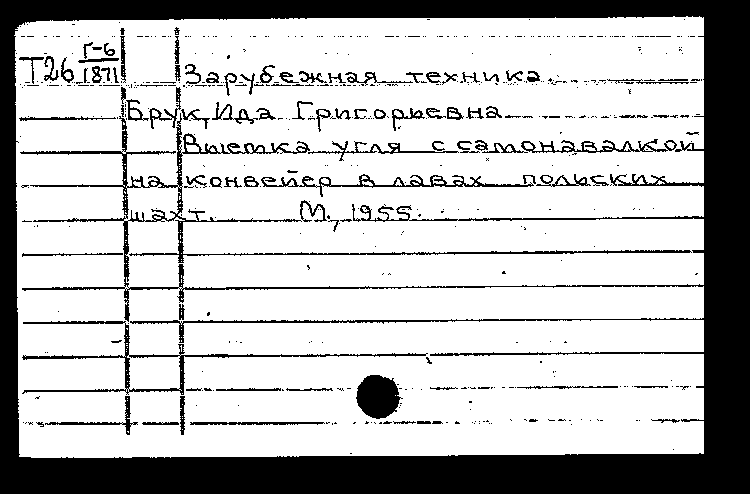 Т26 Г-6/1871 Зарубежная техника.
Брук, Ида Григорьевна
Выемка угля с самонавалкой
на конвейер в лавах польских
шахт. М., 1955.